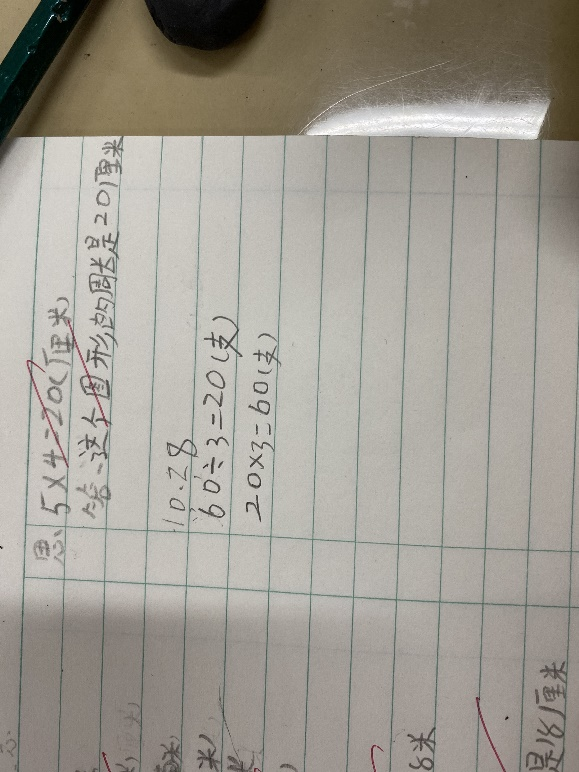 思、5×4=20(厘米)
答:这个图形的周长是20厘米
10.28
60÷3=20(支)
20×3=60(支)
米)
8米
是18厘米